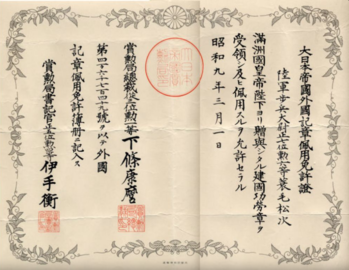 大日本帝国外國記章佩用免許證
陸軍歩兵大尉正七位勲六等裳毛松次
満洲國皇帝陛下ヨリ贈與シタル建國功労章ヲ
受領シ及ヒ佩用スルヲ允許セラル
昭和九年三月一日
賞勲局総裁従四位勲二等下條康麿
第四十六万七千四十九號ヲ以テ外國
記章佩用免許簿冊ニ記入ス
賞勲局書記官正五位勲五等伊手衡